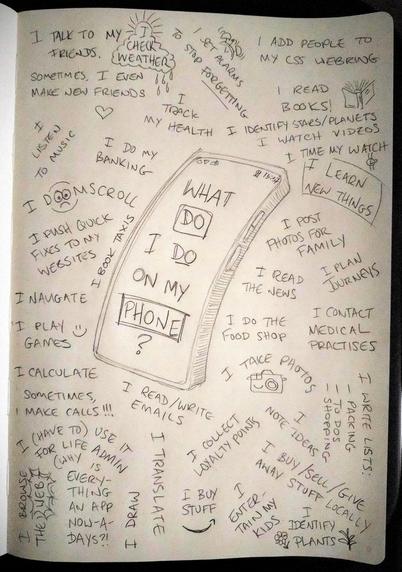 I TALK TO MY
FRIENDS.
SOMETIMES, I EVEN
MAKE NEW FRIENDS
I
CHECK
WEATHER
I SET ALARMS
TO
STOP FORGETTING
I ADD PEOPLE TO
MY CSS WEBRING
I READ
BOOKS!
I
TRACK
MY HEALTH
I IDENTIFY STARS/PLANETS
I WATCH VIDEOS
I TIME MY WATCH
I
LISTEN
TO MUSIC
I DO MY
BANKING
I LEARN
NEW THINGS
I DOOMSCROLL
I PUSH QUICK
FIXES TO MY
WEBSITES
I BOOK TAXIS
WHAT
DO
I DO
ON MY
PHONE
?
I POST
PHOTOS FOR
FAMILY
I PLAN
JOURNEYS
I READ
THE NEWS
I NAVIGATE
I PLAY
GAMES
I DO THE
FOOD SHOP
I CONTACT
MEDICAL
PRACTISES
I CALCULATE
I TAKE PHOTOS
SOMETIMES,
I MAKE CALLS!!!
I READ/WRITE
EMAILS
I COLLECT
LOYALTY POINTS
I
NOTE IDEAS
I WRITE LISTS:
— PACKING
— TO DOS
— SHOPPING
I (HAVE TO) USE IT
FOR LIFE ADMIN
(WHY IS
EVERY-
THING
AN APP
NOW-A-
DAYS?!
I BROWSE
THE WEB
I DRAW
I TRANSLATE
I BUY
STUFF
I
ENTER-
TAIN MY
KIDS
I BUY/SELL/GIVE
AWAY STUFF LOCALLY
I
IDENTIFY
PLANTS